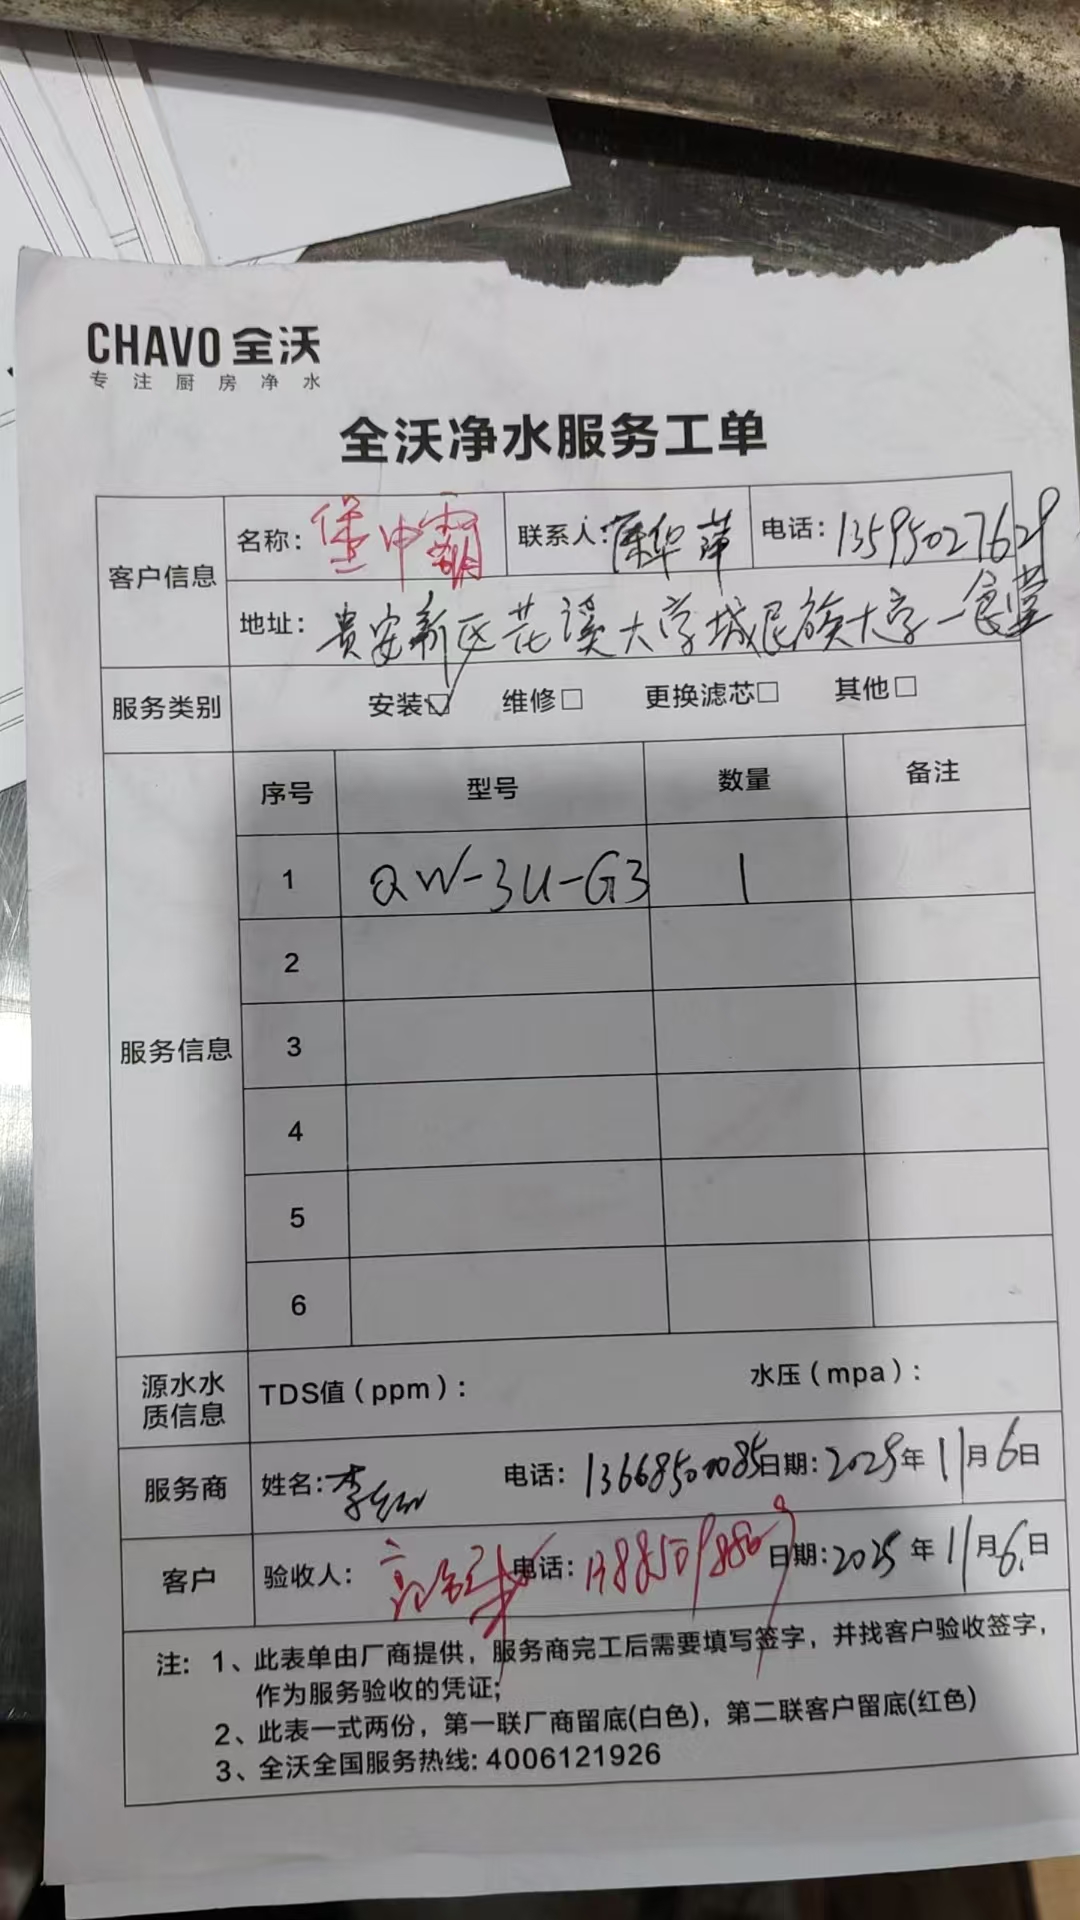 CHAVO 全沃
专注厨房净水
全沃净水服务工单
客户信息
名称: 堡中霸 联系人: 华萍 电话: 13595027629
地址: 贵安新区花溪大学城民族大学一食堂
服务类别 安装☑ 维修□ 更换滤芯□ 其他□
服务信息
序号 型号 数量 备注
1 QW-3U-G3 1
2
3
4
5
6
源水水质信息 TDS值(ppm): 水压(mpa):
服务商 姓名: 李 电话: 13668500085 日期: 2025年11月6日
客户 验收人: 电话: 日期: 2025年11月6日
注: 1、此表单由厂商提供，服务商完工后需要填写签字，并找客户验收签字，
作为服务验收的凭证;
2、此表一式两份，第一联厂商留底(白色)，第二联客户留底(红色)
3、全沃全国服务热线: 4006121926